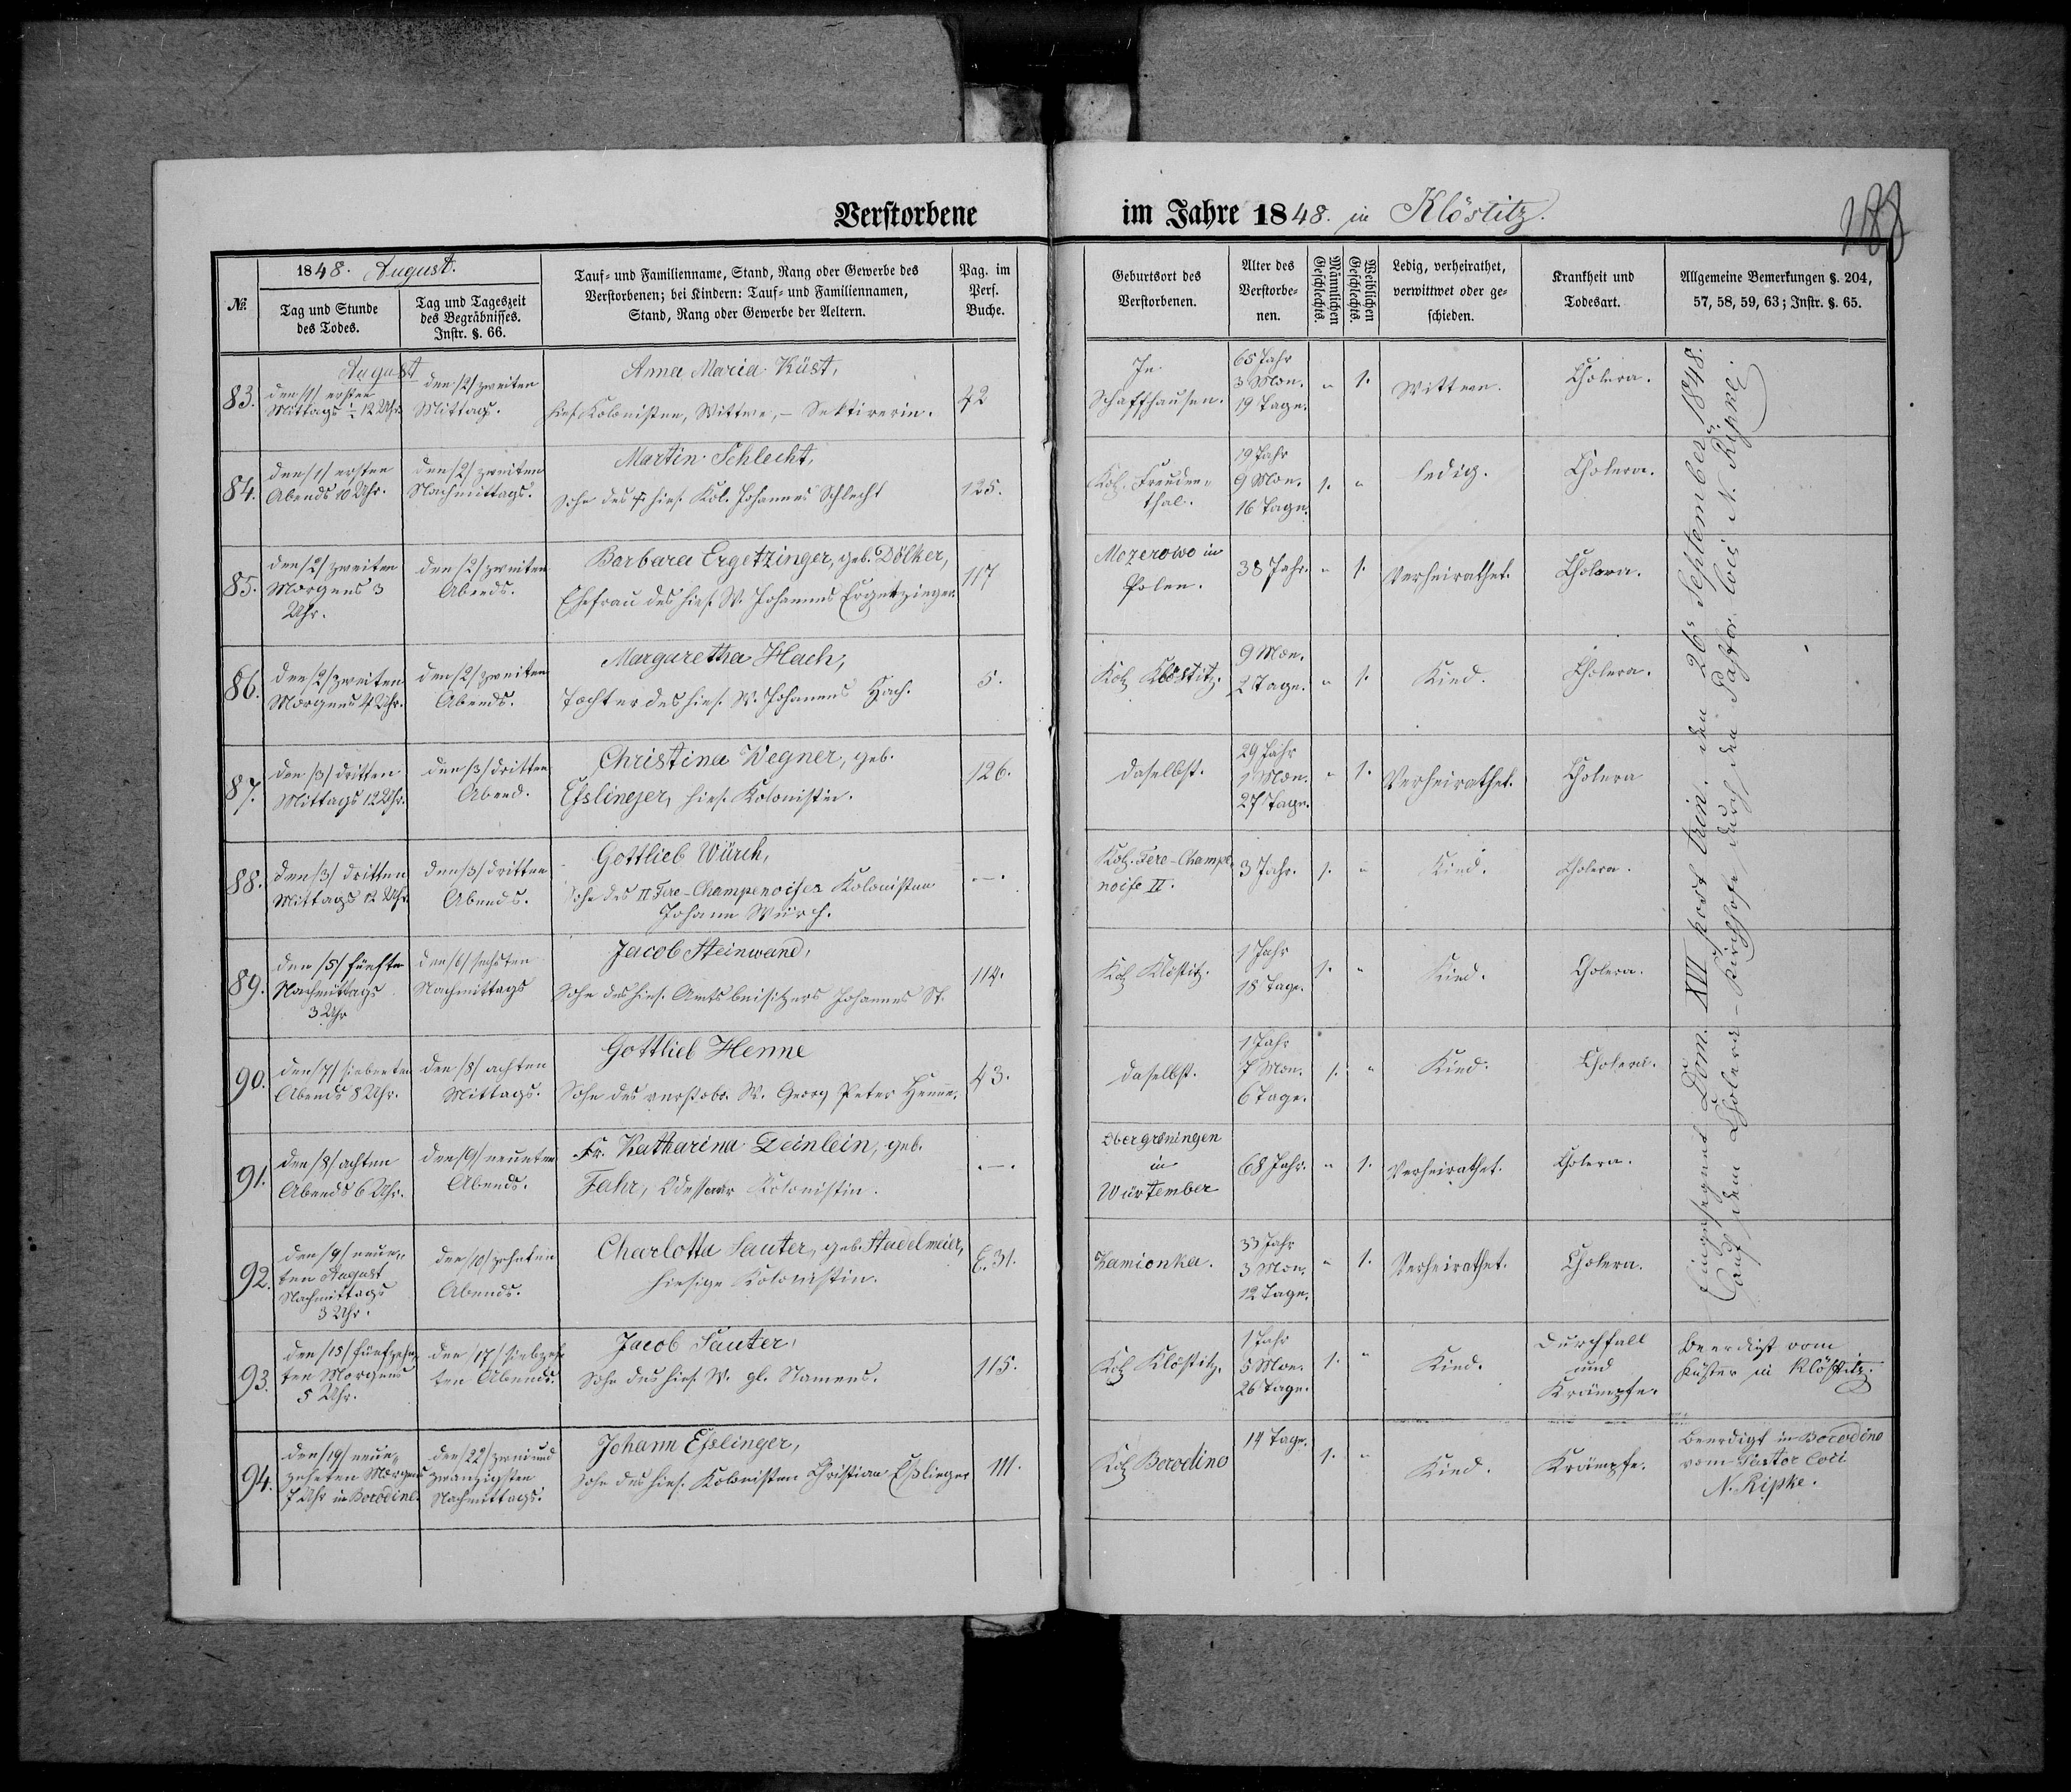 Verstorbene im Jahre 1848. in Klöstitz.
188
№.
1848. August.
Tag und Stunde
des Todes.
Tag und Tageszeit
des Begräbnisses.
Instr. §. 66.
Tauf- und Familienname, Stand, Rang oder Gewerbe des
Verstorbenen; bei Kindern: Tauf- und Familiennamen,
Stand, Rang oder Gewerbe der Aeltern.
Pag. im
Pers.
Buche.
Geburtsort des
Verstorbenen.
Alter des
Verstorbe-
nen.
Männlichen
Geschlechts.
Weiblichen
Geschlechts.
Ledig, verheirathet,
verwittwet oder ge-
schieden.
Krankheit und
Todesart.
Allgemeine Bemerkungen §. 204,
57, 58, 59, 63; Instr. §. 65.
83.
August
den /1/ ersten
Mittags ½ 12 Uhr.
den /2/ zweiten
Mittags.
Anna Maria Küst,
hies. Kolonisten, Wittwe, – Sektirerin.
42
In
Schaffhausen.
65 Jahr
3 Mon.
19 Tage.
" 1.
Wittwe.
Cholera.
84.
den /1/ ersten
Abends 10 Uhr.
den /2/ zweiten
Nachmittags.
Martin Schlecht,
Sohn des hies. Kol. Johannes Schlecht
125.
Kol. Freuden-
thal.
19 Jahr
9 Mon.
16 Tage.
1. "
ledig.
Cholera.
85.
den /2/ zweiten
Morgens 3
Uhr.
den /2/ zweiten
Abends.
Barbara Ergetzinger, geb. Dölker,
Ehefrau des hies. W. Johannes Ergetzinger.
117
Mozerowo in
Polen.
38 Jahr.
" 1.
Verheirathet.
Cholera.
86.
den /2/ zweiten
Morgens 4 Uhr.
den /2/ zweiten
Abends.
Margaretha Hach,
Tochter des hies. W. Johannes Hach.
5.
Kol. Klöstitz.
9 Mon.
2 Tage.
" 1.
Kind.
Cholera.
87.
den /3/ dritten
Mittags 12 Uhr.
den /3/ dritten
Abend.
Christina Wegner, geb.
Esslinger, hies. Kolonistin.
126.
daselbst.
29 Jahr
1 Mon.
27 Tage.
" 1.
Verheirathet.
Cholera
88.
den /3/ dritten
Mittags 12 Uhr
den /3/ dritten
Abends.
Gottlieb Würch,
Sohn des II Fere-Champenoiser Kolonisten
Johann Würch.
—.
Kol. Fere-Champe-
noise II.
3 Jahr.
1. "
Kind.
Cholera.
89.
den /5/ fünften
Nachmittags
3 Uhr
den /6/ sechsten
Nachmittags
Jacob Steinwand,
Sohn des hies. Amtsbeisitzers Johannes St.
114.
Kol. Klöstitz.
1 Jahr
18 Tage.
1. "
Kind.
Cholera.
90.
den /7/ siebenten
Abends 8 Uhr.
den /8/ achten
Mittags.
Gottlieb Henne
Sohn des verstob. W. Georg Peter Henne.
43.
daselbst.
1 Jahr
7 Mon.
6 Tage.
1. "
Kind.
Cholera.
91.
den /8/ achten
Abends 6 Uhr.
den /9/ neunten
Abends.
Fr. Katharina Deinlein, geb.
Fahr, Odessaer Kolonistin.
.—.
Obergröningen
in
Würtember
68 Jahr.
" 1.
Verheirathet.
Cholera.
92.
den /9/ neun-
ten August
Nachmittags
3 Uhr.
den /10/ zehnten
Abends.
Charlotta Sauter, geb. Stadelmeier,
hiesige Kolonistin.
E. 31.
Kamionka.
33 Jahr
3 Mon.
12 Tage.
" 1.
Verheirathet.
Cholera.
93.
den /15/ fünfzehn-
ten Morgens
5 Uhr.
den /17/ siebzehn-
ten Abends.
Jacob Sauter,
Sohn des hies. W. gl. Namens.
115.
Kol. Klöstitz.
1 Jahr
5 Mon.
26 Tage.
1. "
Kind.
Durchfall
und
Krämpfe.
Beerdigt vom
Küster in Klöstitz.
94.
den /19/ neun-
zehnten Morgens
7 Uhr in Borodino.
den /22/ zweiund
zwanzigsten
Nachmittags.
Johann Esslinger,
Sohn des hies. Kolonisten Christian Esslinger
111.
Kol. Borodino
14 Tage.
1. "
Kind.
Krämpfe.
Beerdigt in Borodino
vom Pastor loci
N. Ripke.
Eingesegnet Dom. XVI post trin. den 26. September 1848.
auf dem Cholera-Kirchhofe durch den Pastor loci N. Ripke.